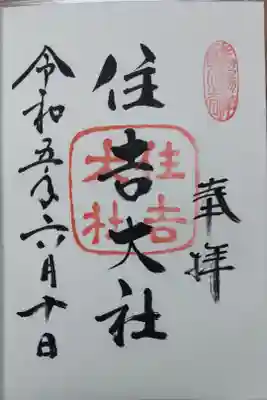 奉拝
住吉大社
住吉大社
令和五年六月十日